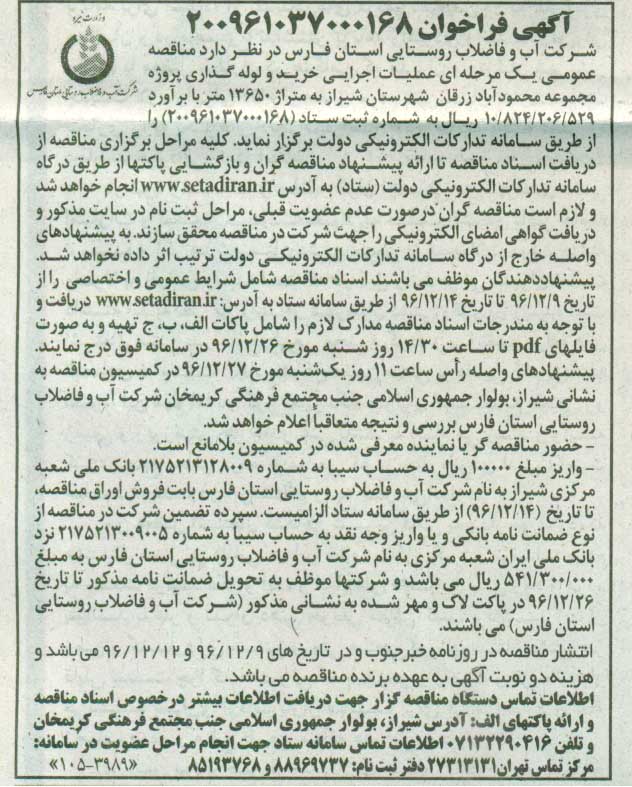 آگهی فراخوان ۲۰۰۹۶۱۰۳۷۰۰۰۱۶۸
وزارت نیرو
شرکت آب و فاضلاب روستایی استان فارس
شرکت آب و فاضلاب روستایی استان فارس در نظر دارد مناقصه
عمومی یک مرحله ای عملیات اجرایی خرید و لوله گذاری پروژه
مجموعه محمودآباد زرقان شهرستان شیراز به متراژ ۱۳۶۵۰ متر با برآورد
۱۰/۸۲۴/۲۰۶/۵۲۹ ریال به شماره ثبت ستاد (۲۰۰۹۶۱۰۳۷۰۰۰۱۶۸) را
از طریق سامانه تدارکات الکترونیکی دولت برگزار نماید. کلیه مراحل برگزاری مناقصه از
دریافت اسناد مناقصه تا ارائه پیشنهاد مناقصه گران و بازگشایی پاکتها از طریق درگاه
سامانه تدارکات الکترونیکی دولت (ستاد) به آدرس www.setadiran.ir انجام خواهد شد
و لازم است مناقصه گران درصورت عدم عضویت قبلی، مراحل ثبت نام در سایت مذکور و
دریافت گواهی امضای الکترونیکی را جهت شرکت در مناقصه محقق سازند. به پیشنهادهای
واصله خارج از درگاه سامانه تدارکات الکترونیکی دولت ترتیب اثر داده نخواهد شد.
پیشنهاددهندگان موظف می باشند اسناد مناقصه شامل شرایط عمومی و اختصاصی را از
تاریخ ۹۶/۱۲/۹ تا تاریخ ۹۶/۱۲/۱۴ از طریق سامانه ستاد به آدرس: www.setadiran.ir دریافت و
با توجه به مندرجات اسناد مناقصه مدارک لازم را شامل پاکات الف، ب، ج تهیه و به صورت
فایلهای pdf تا ساعت ۱۴/۳۰ روز شنبه مورخ ۹۶/۱۲/۲۶ در سامانه فوق درج نمایند.
پیشنهادهای واصله رأس ساعت ۱۱ روز یک‌شنبه مورخ ۹۶/۱۲/۲۷ در کمیسیون مناقصه به
نشانی شیراز، بولوار جمهوری اسلامی جنب مجتمع فرهنگی کریمخان شرکت آب و فاضلاب
روستایی استان فارس بررسی و نتیجه متعاقباً اعلام خواهد شد.
- حضور مناقصه گر یا نماینده معرفی شده در کمیسیون بلامانع است.
- واریز مبلغ ۱۰۰۰۰۰ ریال به حساب سیبا به شماره ۲۱۷۵۲۱۳۱۲۸۰۰۹ بانک ملی شعبه
مرکزی شیراز به نام شرکت آب و فاضلاب روستایی استان فارس بابت فروش اوراق مناقصه،
تا تاریخ (۹۶/۱۲/۱۴) از طریق سامانه ستاد الزامیست. سپرده تضمین شرکت در مناقصه از
نوع ضمانت نامه بانکی و یا واریز وجه نقد به حساب سیبا به شماره ۲۱۷۵۲۱۳۰۰۹۰۰۵ نزد
بانک ملی ایران شعبه مرکزی به نام شرکت آب و فاضلاب روستایی استان فارس به مبلغ
۵۴۱/۳۰۰/۰۰۰ ریال می باشد و شرکتها موظف به تحویل ضمانت نامه مذکور تا تاریخ
۹۶/۱۲/۲۶ در پاکت لاک و مهر شده به نشانی مذکور (شرکت آب و فاضلاب روستایی
استان فارس) می باشند.
انتشار مناقصه در روزنامه خبرجنوب و در تاریخ های ۹۶/۱۲/۹ و ۹۶/۱۲/۱۲ می باشد و
هزینه دو نوبت آگهی به عهده برنده مناقصه می باشد.
اطلاعات تماس دستگاه مناقصه گزار جهت دریافت اطلاعات بیشتر درخصوص اسناد مناقصه
و ارائه پاکتهای الف: آدرس شیراز، بولوار جمهوری اسلامی جنب مجتمع فرهنگی کریمخان
و تلفن ۰۷۱۳۲۲۹۰۴۱۶ اطلاعات تماس سامانه ستاد جهت انجام مراحل عضویت در سامانه:
مرکز تماس تهران ۲۷۳۱۳۱۳۱ دفتر ثبت نام: ۸۸۹۶۹۷۳۷ و ۸۵۱۹۳۷۶۸ «۱۰۵-۳۹۸۹»